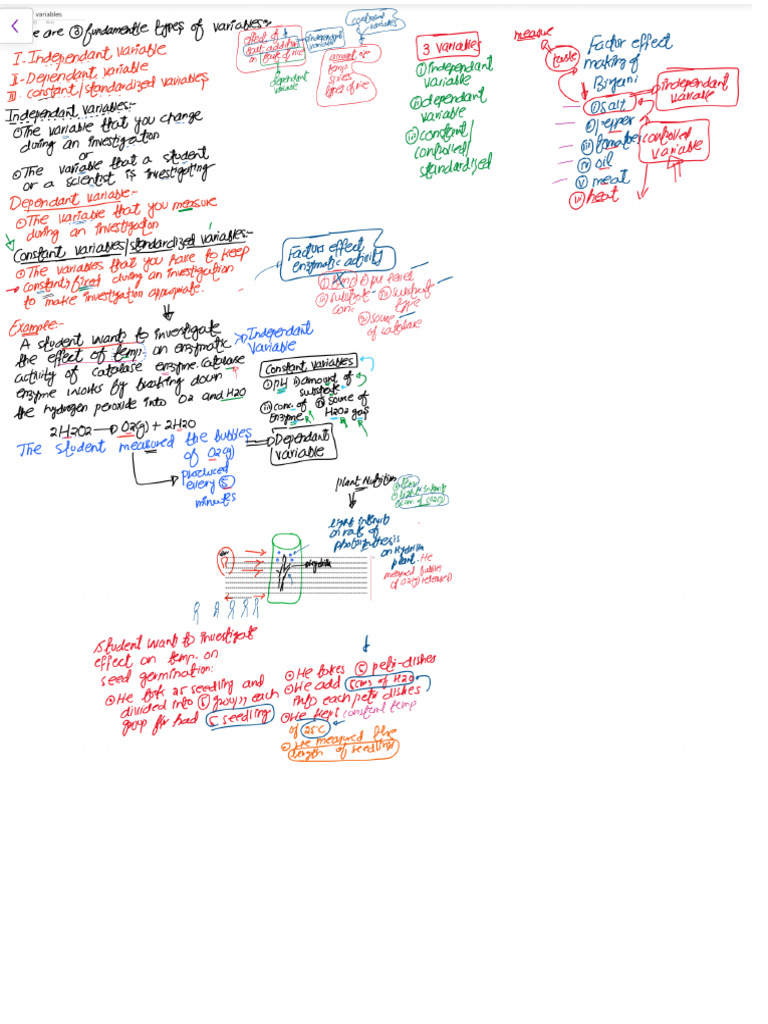 variables
e are ③ fundamentle types of variables:-
I - Independant variable
II - Dependant variable
III constant/standardized variables
Independant variables:-
⊙ The variable that you change
during an investigation
or
⊙ The variable that a student
or a scientist is investigating
Dependant variable:-
⊙ The variable that you measure
during an investigation
Constant variables/standardized variables:-
⊙ The variables that you have to keep
constant, fixed during an investigation
to make investigation appropriate.
Example:-
A student want to investigate
the effect of temp. on enzymatic
activity of catalase enzyme. Catalase
enzyme works by breaking down
the hydrogen peroxide into O2 and H2O
2H2O2 → O2(g) + 2H2O
The student measured the bubbles
of O2(g)
produced
every ⑤
minutes
Independant
Variable
Constant variables
① pH ② amount of
substrate
③ conc. of ④ source of
Enzyme H2O2 gas
Dependant
variable
Factors effect
enzymatic activity
effect of
salt addition
on taste of rice
independant
variable
constant
variables
dependant
variable
amount of
temp
types of rice
3 variables
① independant
variable
② dependant
variable
③ constant/
controlled/
standardized
measure
taste
Factor effect
making of
Biryani
① salt
② pepper
③ tomatoes
④ oil
⑤ meat
⑥ heat
independant
variable
controlled
variable
Plant Nutrition
light intensity
on rate of
photosynthesis
on Hydrilla
plant. He
measured bubbles
of O2(g) released
Student want to investigate
effect on temp. on
seed germination:
⊙ He took 25 seedling and
divided into ⑤ groups each
group had 5 seedling
⊙ He takes ⑤ petri-dishes
⊙ He add 5cm3 of H2O
into each petri dishes
⊙ He kept constant temp
of 25C
⊙ He measured the
length of seedling